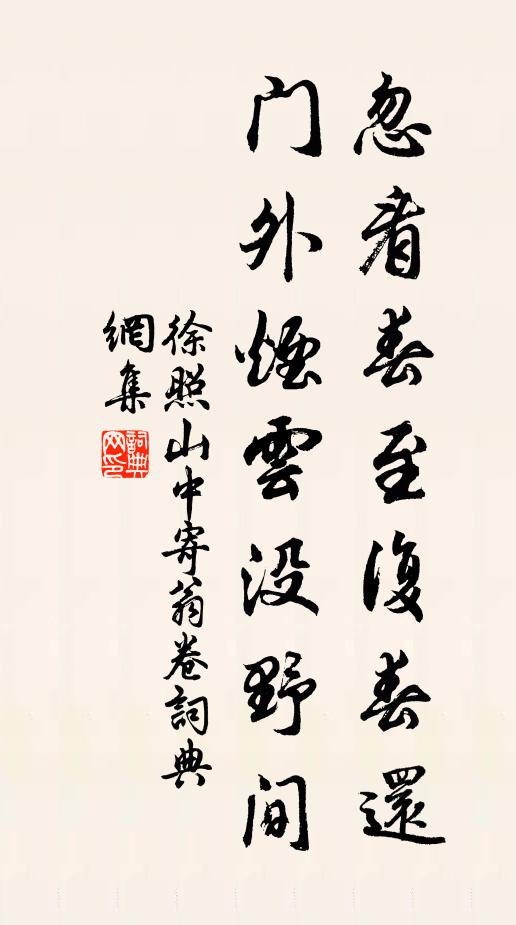 忽看春至復春還
門外煙雲没野間
徐照山中寄翁卷詞典
網集
詞典網印